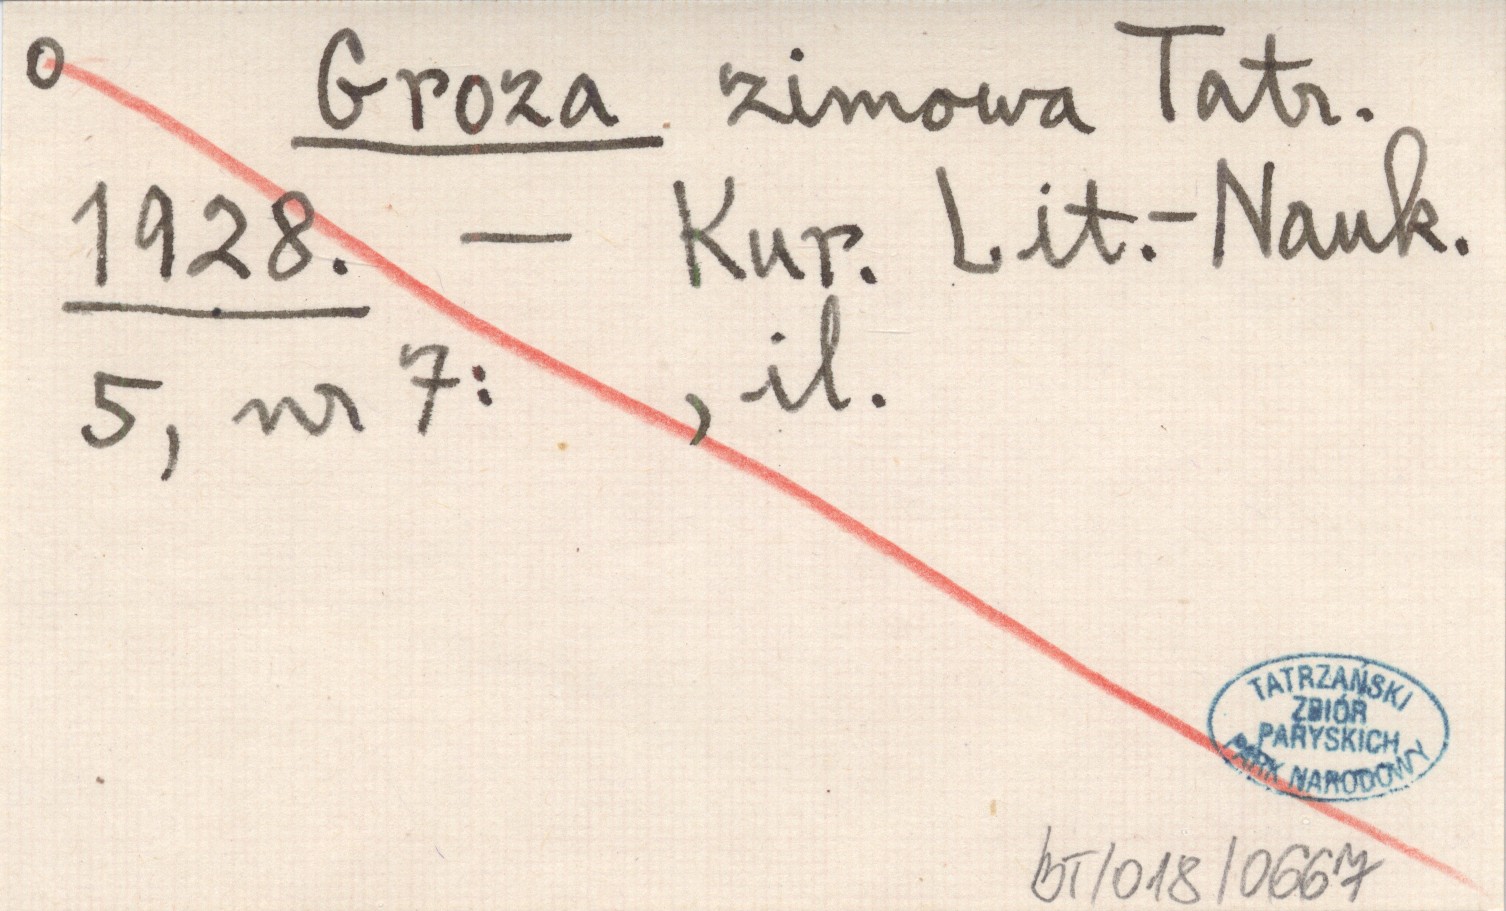 o Groza zimowa Tatr.
1928. — Kur. Lit.-Nauk.
5, nr 7: , il.
TATRZAŃSKI
ZBIÓR
PARYSKICH
PARK NARODOWY
BT/018/0667